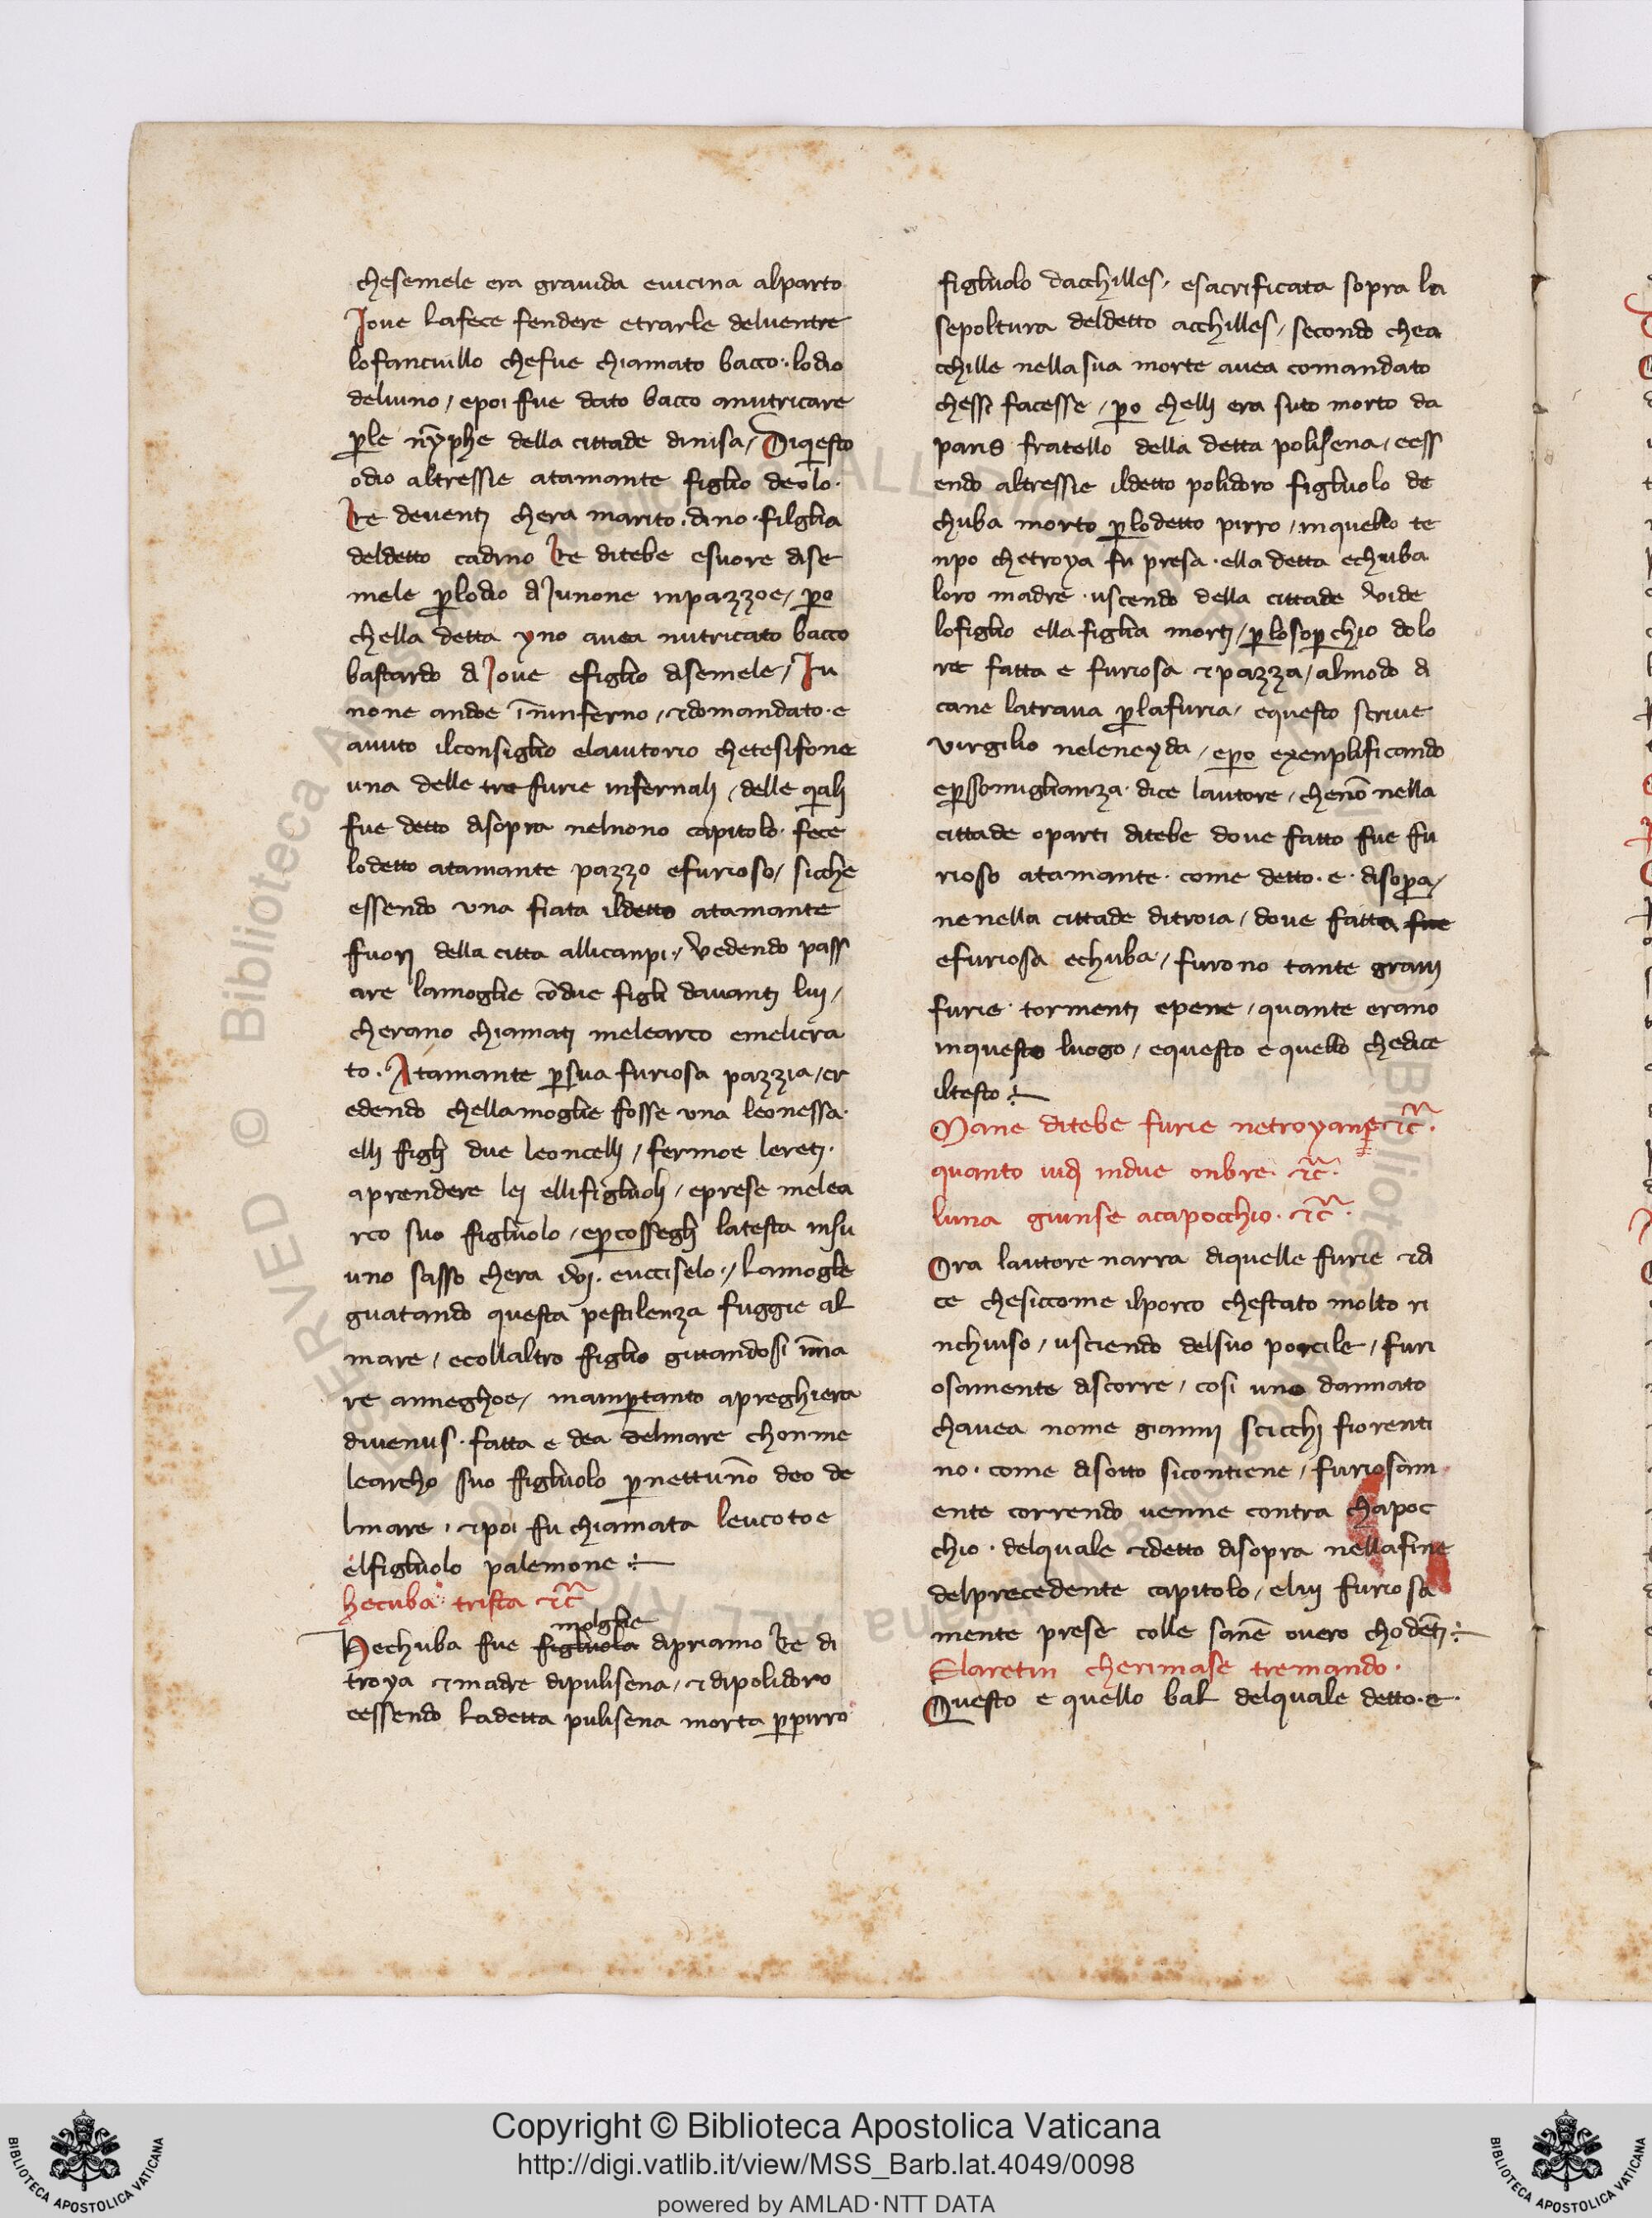 chesemele era grauida euicina alparto
Joue lafece fendere etrarle deluentre
lofanciullo chefue chiamato bacco · lodio
deluino / epoi fue dato bacco anutricare
ꝑle nỹphe della cittade dinisa / Diqͥesto
odio altressie atamante figlio deolo ·
Re deuentj chera marito · dino · filglia
deldetto cadmo Re ditebe esuore dise
mele ꝑlodio dJunone inpazzoe / ꝑo
chella detta yno auea nutricato bacco
bastardo dJoue efiglio disemele / Ju
none andoe ĩnninferno / ⁊domandato · e
auuto ilconsiglio elaiutorio chetesifone
una delle tre furie infernalj / delle qͣlj
fue detto disopra nelnono capitolo · fece
lodetto atamante pazzo efurioso / sicche
essendo una fiata ildetto atamante
fuorj della citta allicanpi · / Vedendo pass
are lamoglie cõdue figli dauantj luj /
cherano chiamatj melearco emelicra
to · Atamante ꝑsua furiosa pazzia / cr
edendo chellamoglie fosse una leonessa ·
ellj figlj due leoncellj / fermoe leretj ·
aprendere lej ellifigliuolj / eprese melea
rco suo figliuolo / eꝑcosseglj latesta insu
uno sasso chera iuj · eucciselo · / Lamoglie
guatando questa pestilenza fuggie al
mare / ecollaltro figlio gittandosi ĩma
re anneghoe / inamꝑtanto apreghiera
diuenus · fatta e dea delmare chonme
learcho suo figliuolo ꝑnettunõ deo de
lmare · ⁊poi fu chiamata leucotoe
elfigliuolo palemone ÷
hecuba trista ⁊c̃
molglie
Hechuba fue figliuola dipriamo Re di
troya ⁊madre dipulisena / ⁊dipolidoro
eessendo ladetta pulisena morta ꝑpirro
figliuolo dacchilles / esacrificata sopra la
sepoltura deldetto acchilles / secondo chea
cchille nella sua morte auea comandato
chessi facesse / ꝑo chellj era suto morto da
paris fratello della detta polisena / eess
endo altressie ildetto polidoro figliuolo de
chuba morto ꝑlodetto pirro / inquello te
npo chetroya fu presa · ella detta echuba
loro madre · uscendo della cittade vide
lofiglio ella figlia mortj / ꝑlosoꝑchio dolo
re fatta e furiosa ⁊pazza / almodo di
cane latraua ꝑlafuria / equesto scriue
virgilio neleneyda / eꝑo exenplificando
eꝑssomiglianza · dice lautore / chenõ nella
cittade oparti ditebe doue fatto fue fu
rioso atamante · come detto · e · disopͣa /
nenella cittade ditroia / doue fatta fue
efuriosa echuba / furono tante grauj
furie · tormentj epene / quante erano
inquesto luogo / equesto e quello chedice
iltesto ÷
Mane ditebe furie netroyanꝑ⁊c̃ ·
quanto uidj indue onbre · ⁊c̃ ·
luna giunse acapocchio · ⁊c̃ ·
Ora lautore narra diquelle furie ⁊di
ce chesiccome ilporco chestato molto ri
nchiuso / usciendo delsuo porcile / furi
osamente discorre / cosi uno dannato
chauea nome giannj scicchj fiorenti
no · come disotto sicontiene / furiosam
ente correndo uenne contra chapoc
chio · delquale ⁊detto disopra nellafine
delprecedente capitolo / eluj furiosa
mente prese colle sanẽ ouero chodẽtj ÷
Elaretin cherimase tremando ·
Questo e quello bal delquale detto · e ·
Copyright © Biblioteca Apostolica Vaticana
http://digi.vatlib.it/view/MSS_Barb.lat.4049/0098
powered by AMLAD·NTT DATA
BIBLIOTECA APOSTOLICA VATICANA
BIBLIOTECA APOSTOLICA VATICANA